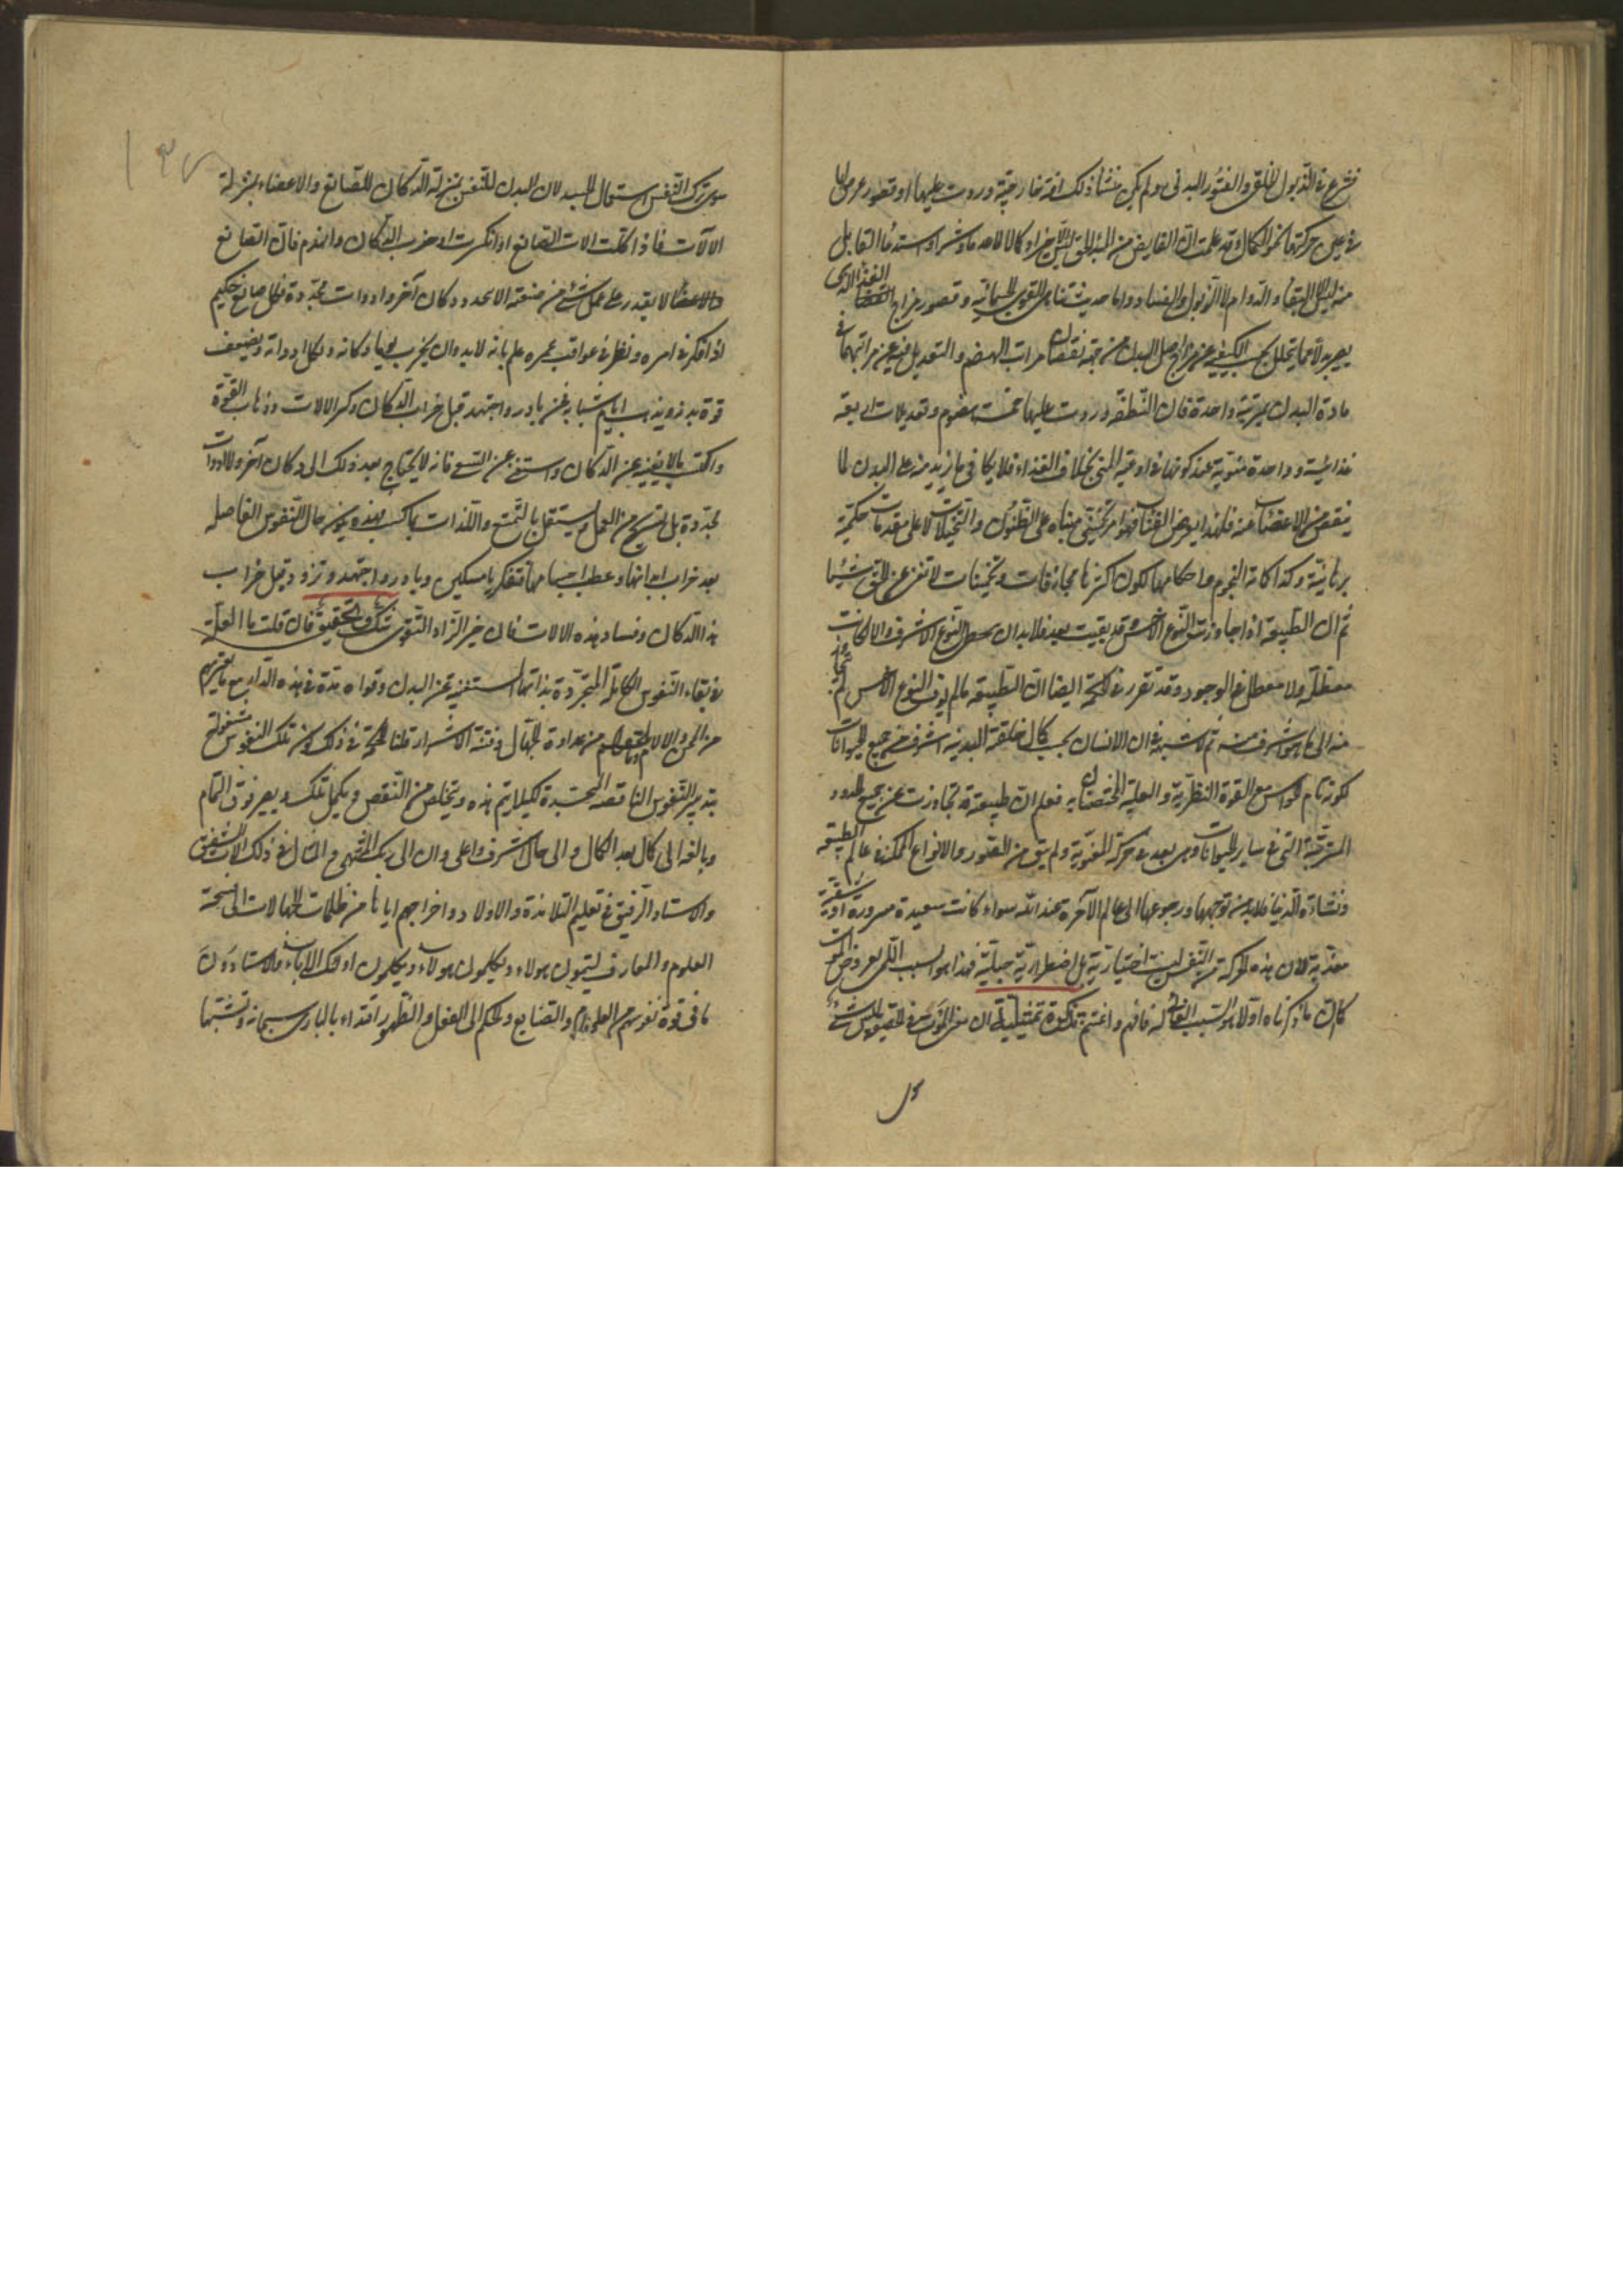 فشرع في الذبول الخلقي والفتور البدني ولم يكن منشأ ذلك آفة خارجية وردت عليها او قصور عرض لها
في عين حركتها نحو الكمال وقد علمت ان الفايض من المبدء الحق ليس الا خيرا وكمالا لا ضررا وشرا واستدعاء القابل
منه ليس الا البقاء والدوام لا الذبول والفساد واما حديث تناهي القوى الجسمانية وقصور مزاج الغذاء الذي
يصير بدلا عما يتحلل بحسب الكيفية عن مزاج اصل البدن من جهة نقصان مراتب الهضم والتعديل فيه عن مراتبهما في
مادة البدن بمرتبة واحدة فان النطفة وردت عليها خمسة هضوم وتعديلات اربعة
غذائية وواحدة منوية عند كونها في اوعية المني بخلاف الغذاء فلا يكافي ما يزيد منه على البدن لما
ينقص من الاعضاء عنه فلهذا يعرض الفناء فهو امر تخميني مبناه على الظنون والتخيلات لا على مقدمات حكمية
برهانية وكذا كلمة النجوم واحكامها لكون اكثرها مجازفات وتخمينات لا تغني عن الحق شيئا
ثم ان الطبيعة اذا جاوزت النوع الاخس وقد بقيت بعد فلا بد ان يحصل النوع الاشرف والا لكانت
معطلة ولا معطل في الوجود وقد تقرر في الحكمة ايضا ان الطبيعة ما لم يوف النوع الاخس لم يتجاوز
منه الى ما هو اشرف منه ثم لا شبهة في ان الانسان بحسب كمال خلقته البدنية اشرف من جميع الحيوانات
لكونه تام الحواس مع القوة النظرية والعملية المختصتان به فعلم ان طبيعته قد تجاوزت عن جميع الحدود
المترتبة التي في ساير الحيوانات وهي بعد في حركته المعنوية ولم يبق من الصور والانواع الممكنة في عالم الطبيعة
ونشأة الدنيا فلا بد من توجهها ورجوعها الى عالم الآخرة عند الله سواء كانت سعيدة مسرورة او شقية
معذبة لان هذه الحركة من النفس ليست اختيارية بل اضطرارية جبلية فهذا هو السبب اللمي لعروض الموت
كما ان ما ذكرناه اولا هو السبب الغائي له فافهم واغتنم تذكرة تمثيلية ان معنى الموت في الحقيقة ليس شيء
سوى ترك النفس استعمال الجسد لان البدن للنفس بمنزلة الدكان للصانع والاعضاء بمنزلة
الآلات فاذا كلت آلات الصانع اذا انكسرت او خرب الدكان وانهدم فان الصانع
لا يقدر على عمل شيء من صنعته الا بحدود دكان آخر وادوات مجددة فكل صانع حكيم
اذا فكر في امره ونظر في عواقب عمره علم بانه لا بد وان يخرب يوما دكانه ويكل ادواته ويضعف
قوة بدنه ويذهب ايام شبابه فمن بادر واجتهد قبل خراب الدكان وكسر الآلات وذهاب القوة
واكتسب مالا يغنيه عن الدكان واستغنى عن السعي فانه لا يحتاج بعد ذلك الى دكان آخر ولا ادوات
مجددة بل يستريح من العمل ويشتغل بالتمتع واللذات بما كسب فهذه يكون حال النفوس الفاضلة
بعد خراب ابدانها وعطب اجسامها فتفكر يا مسكين وبادر واجتهد وتزود قبل خراب
هذا الدكان وفساد هذه الآلات فان خير الزاد التقوى شك وتحقيق فان قلت ما العلة
في بقاء النفوس الكاملة المتجردة بذاتها المستغنية عن البدن وقواه مدة في هذه الدار مع ما يعتريهم
من المحن والآلام من عداوة الجهال وفتنة الاشرار قلنا الحكمة في ذلك كون تلك النفوس مشغولة
بتدبير النفوس الناقصة المتجسدة لكيلا يتم هذه ويتخلص من النقص ويكمل تلك ويصير فوق التمام
وبالغة الى كمال بعد الكمال والى حال اشرف واعلى وان الى ربك المنتهى والمثال في ذلك الاب الشفيق
والاستاد الرفيق في تعليم التلامذة والاولاد واخراجهم اياها من ظلمات الجهالات الى فسحة
العلوم والمعارف ليتمون هولاء ويكملون هولاء ويكملون اولئك الاباء والاستادون
ما في قوة نفوسهم من العلوم والصنايع والحكم الى الفعل والظهور اقتداء بالباري سبحانه وتشبها